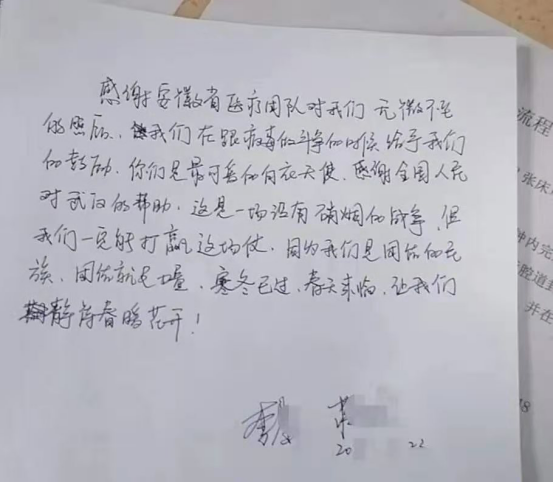 感谢安徽省医疗团队对我们无微不至
的照顾、我们在跟病毒的斗争的时候给予我们
的鼓励，你们是最可爱的白衣天使、感谢全国人民
对武汉的帮助，这是一场没有硝烟的战争，但
我们一定能打赢这场仗，因为我们是团结的民
族、团结就是力量，寒冬已过，春天来临，让我们
静待春暖花开！
李
20 22
流程
张床
钟内完
腔道
并在